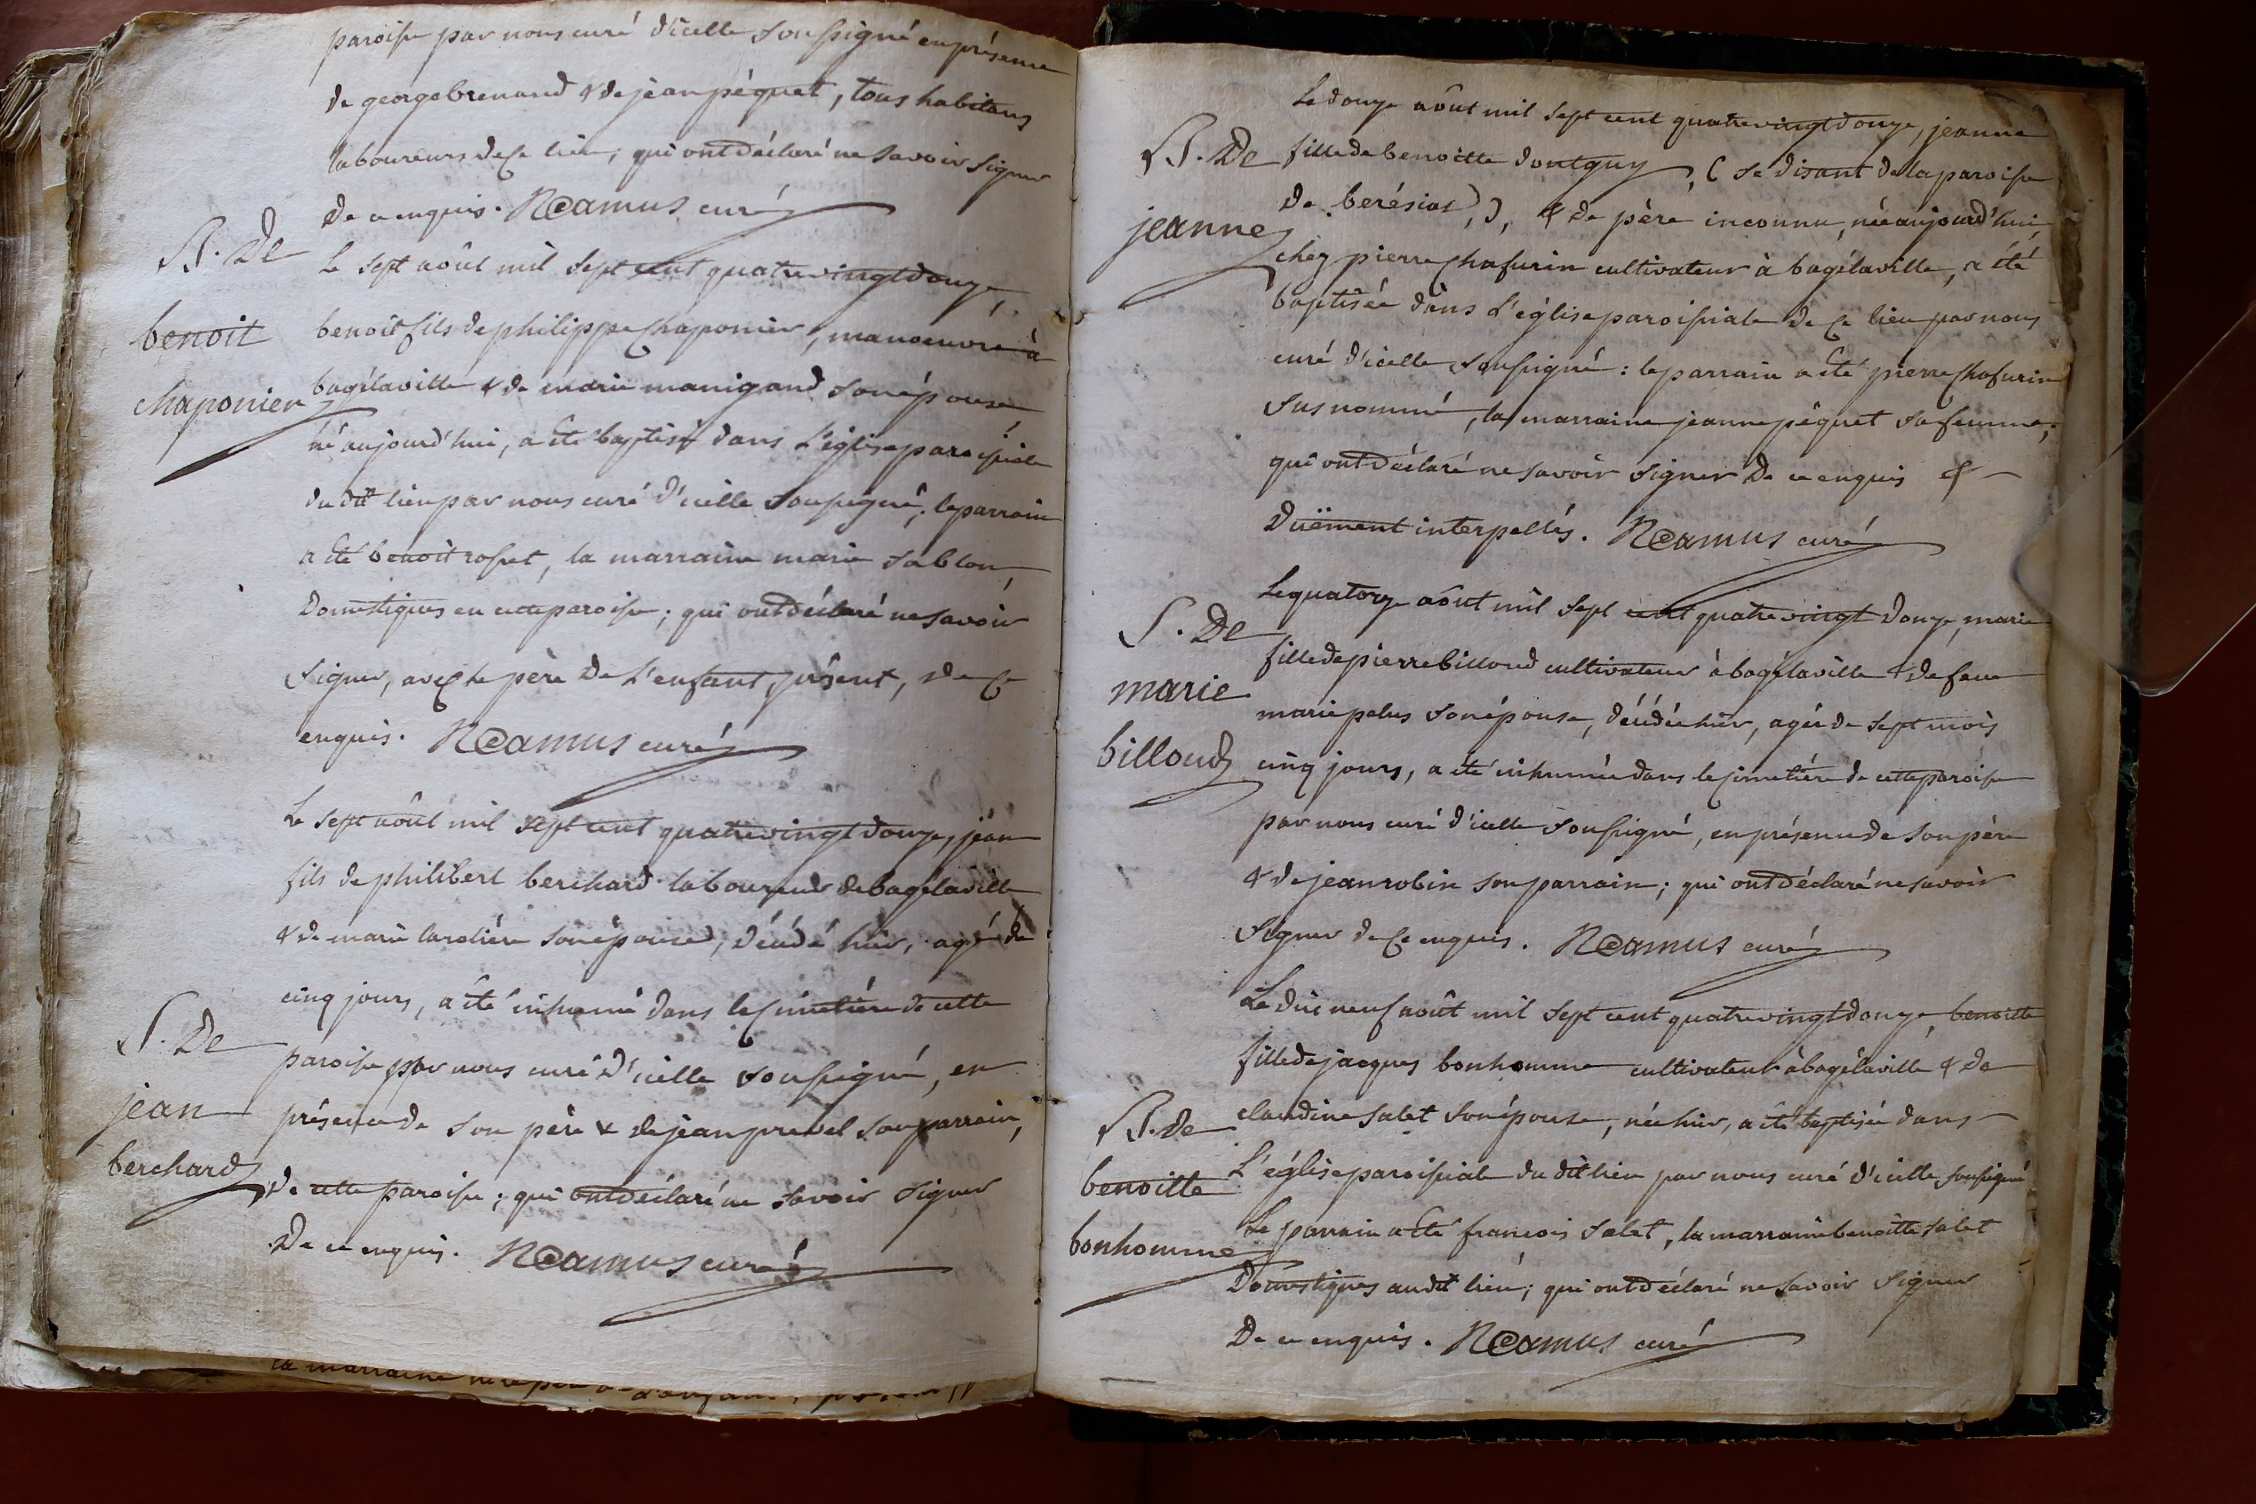 paroisse par nous curé d'icelle soussigné en présence
de george brenand & de jean péquet, tous habitans
laboureurs de ce lieu; qui ont déclaré ne savoir signer
de ce enquis. Ramus curé
B. De
benoit
chaponier
Le sept août mil sept cent quatrevingt douze,
benoît fils de philippe chaponier, manoeuvre à
bagélaville & de marie manigand son épouse
né aujourd'hui, a été baptisé dans l'église paroissiale
du dit lieu par nous curé d'icelle soussigné; le parrain
a été benoit rosset, la marraine marie sablon,
domestiques en cette paroisse; qui ont déclaré ne savoir
signer, avec le père de l'enfant, présent, de ce
enquis. Ramus curé
S. De
jean
berchard
Le sept août mil sept cent quatrevingt douze, jean
fils de philibert berchard laboureur de bagélaville
& de marie laroliére son épouse, décédé hier, agé de
cinq jours, a été inhumé dans le cimetière de cette
paroisse par nous curé d'icelle soussigné, en
présence de son père & de jean prevel son parrain,
de cette paroisse; qui ont déclaré ne savoir signer
de ce enquis. Ramus curé
la marraine
B. De
jeanne
Le douze août mil sept cent quatrevingt douze, jeanne
fille de benoitte dontguy, (se disant de la paroisse
de berésiat), & de père inconnu, née aujourd'hui
chez pierre chafurin cultivateur à bagélaville, a été
baptisée dans l'église paroissiale de ce lieu par nous
curé d'icelle soussigné: le parrain a été pierre chafurin
susnommé, la marraine jeanne péquet sa femme;
qui ont déclaré ne savoir signer de ce enquis &
duëment interpellés. Ramus curé
S. De
marie
billoud
Le quatorze août mil sept cent quatrevingt douze, marie
fille de pierre billoud cultivateur à bagélaville & de feue
marie pelus son épouse, décédée hier, agée de sept mois
cinq jours, a été inhumée dans le cimetière de cette paroisse
par nous curé d'icelle soussigné, en présence de son père
& de jean robin son parrain; qui ont déclaré ne savoir
signer de ce enquis. Ramus curé
B. De
benoitte
bonhomme
Le dix neuf août mil sept cent quatrevingt douze, benoitte
fille de jacques bonhomme cultivateur à bagélaville & de
claudine salet son épouse, née hier, a été baptisée dans
l'église paroissiale du dit lieu par nous curé d'icelle soussigné
Le parrain a été françois salet, la marraine benoitte salet
domestiques au dit lieu; qui ont déclaré ne savoir signer
de ce enquis. Ramus curé